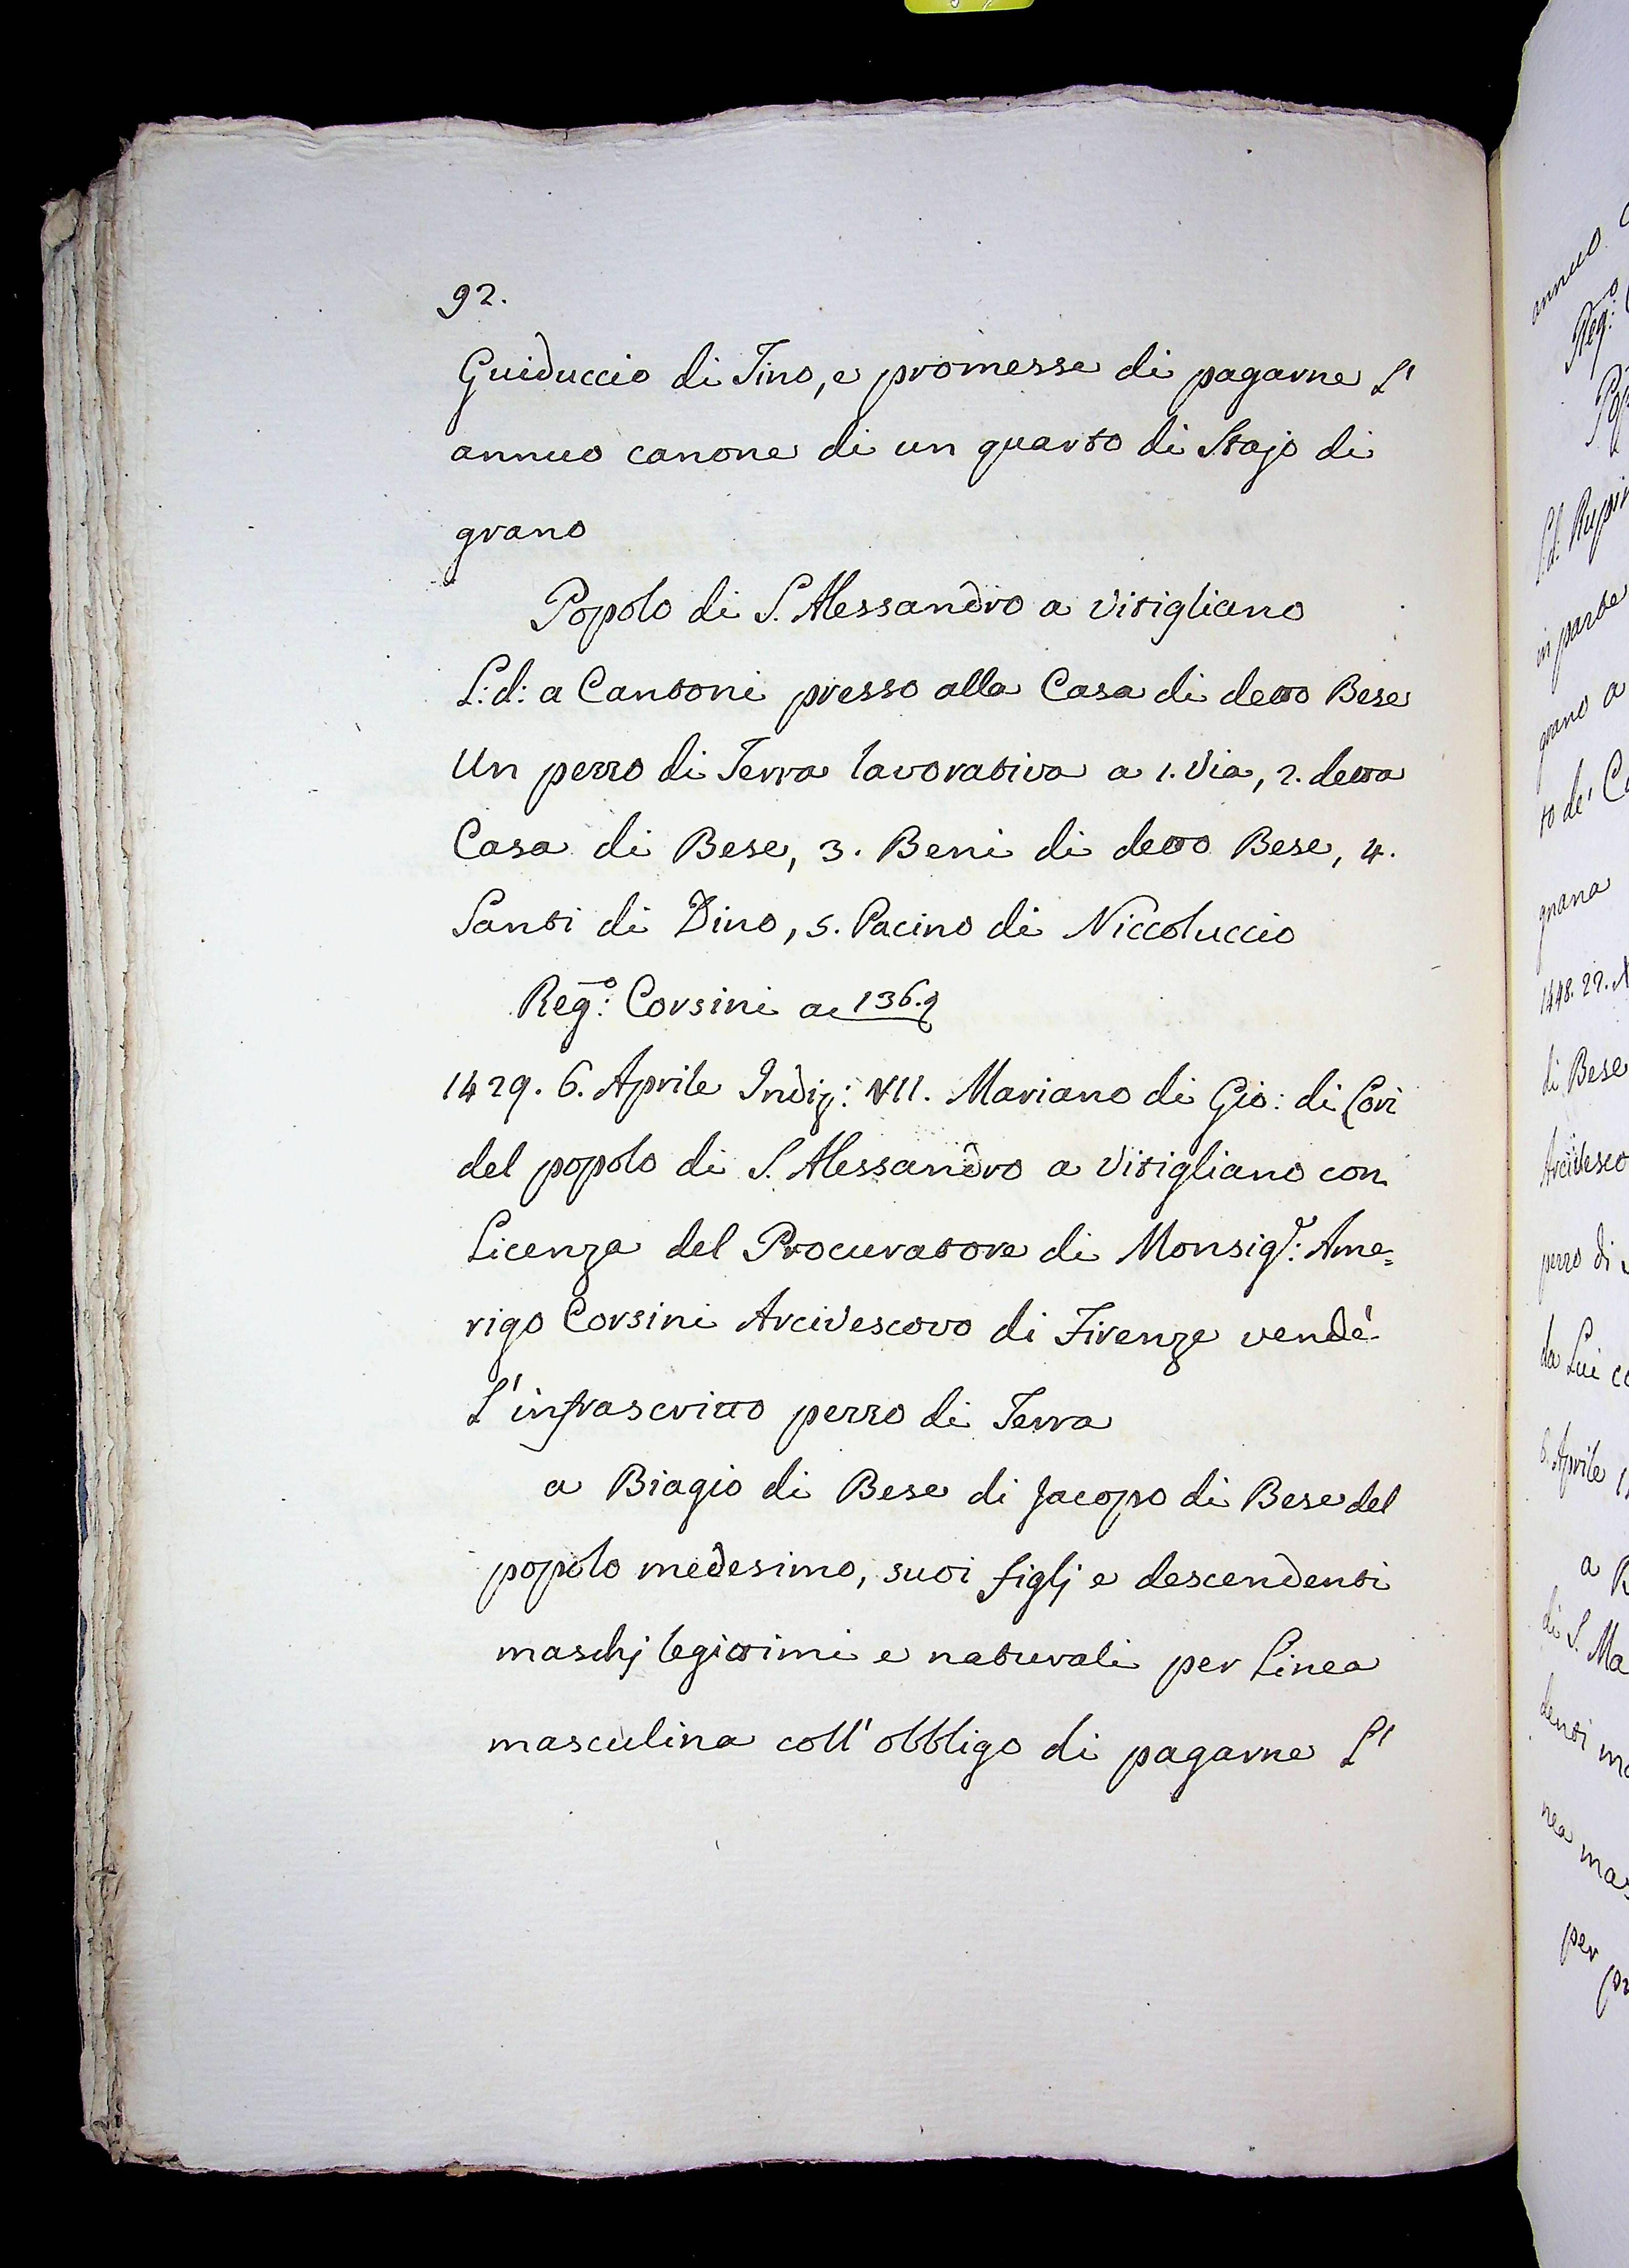 92.
Guiduccio di Tino, e promesse di pagarne L'
annuo canone di un quarto di Stajo di
grano
Popolo di S. Alessandro a Vitigliano
L: d: a Cantoni presso alla Casa di detto Bese
Un pezzo di Terra lavorativa a 1. Via, 2. detta
Casa di Bese, 3. Beni di detto Bese, 4.
Santi di Dino, 5. Pacino di Niccoluccio
Reg:º Corsini a 136.
1429. 6. Aprile Indiz: VII. Mariano di Gio: di Cori
del popolo di S. Alessandro a Vitigliano con
Licenza del Procuratore di Monsig:r Ame=
rigo Corsini Arcivescovo di Firenze vendè
L'infrascritto pezzo di Terra
a Biagio di Bese di Jacopo di Bese del
popolo medesimo, suoi figlj e descendenti
maschj legittimi e naturali per Linea
masculina coll'obbligo di pagarne L'
annuo
Reg:º
L: d:
in parte
grano a
to de' C
gnana
1448. 22.
di Bese
Arcivesco
pezzo di
da Lui
6. Aprile
a
di S. Ma
denti
nea mas
per